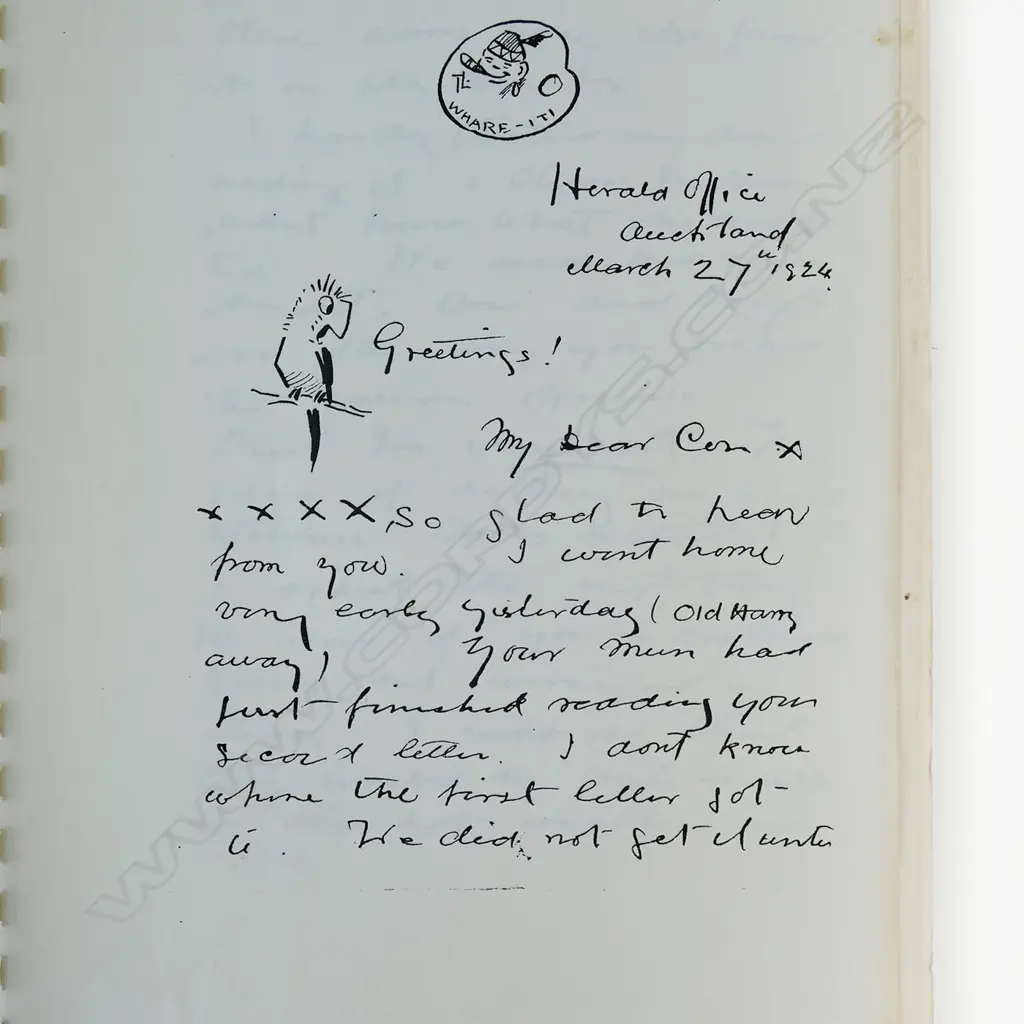 TL
WHARE-ITI
Herald Office
Auckland
March 27th 1924.
Greetings!
My Dear Con x
x x x x, so glad to hear
from you. I went home
very early yesterday (Old Harry
away) Your Mum had
just finished reading your
second letter. I dont know
where the first letter got
to. We did not get it until
WWW.CORDYS.CO.NZ